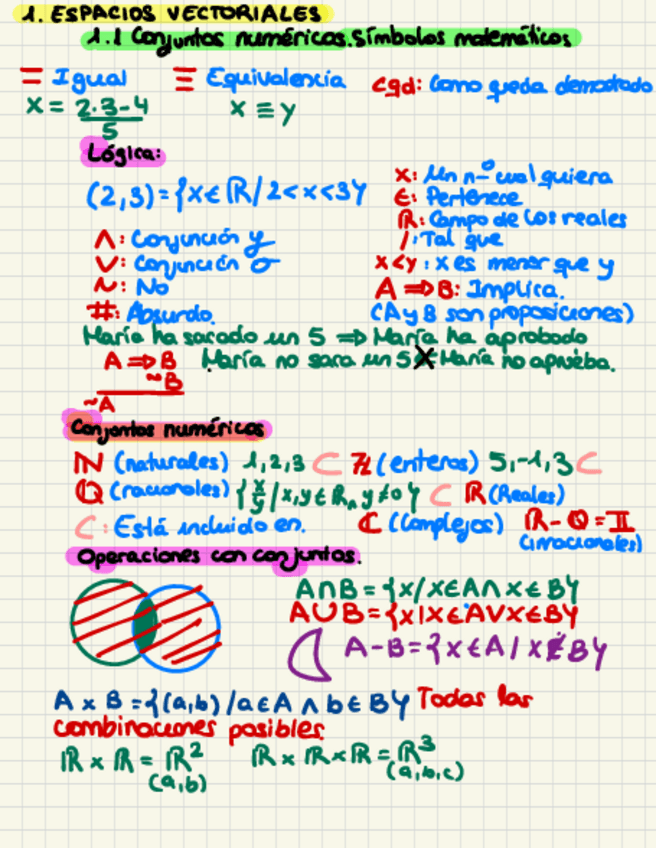 1. ESPACIOS VECTORIALES
1.1 Conjuntos numéricos. Símbolos matemáticos
= Igual ≡ Equivalencia cqd: Como queda demostrado
x = 2·3-4 / 5 x ≡ y
Lógica:
(2,3) = {x ∈ ℝ / 2 < x < 3}
x: Un nº cualquiera
∈: Pertenece
ℝ: Campo de los reales
/: Tal que
x<y: x es menor que y
A ⇒ B: Implica.
(A y B son proposiciones)
∧: Conjunción y
∨: Conjunción o
~: No
#: Absurdo.
María ha sacado un 5 ⇒ María ha aprobado
A ⇒ B María no saca un 5 María no aprueba.
~B
~A
Conjuntos numéricos
ℕ (naturales) 1,2,3 ⊂ ℤ (enteros) 5,-1,3 ⊂
ℚ (racionales) {x/y / x,y ∈ ℝ ∧ y≠0} ⊂ ℝ (Reales)
⊂: Está incluido en. ℂ (Complejos) ℝ - ℚ = 𝕀
(irracionales)
Operaciones con conjuntos.
A∩B = {x/x∈A ∧ x∈B}
A∪B = {x/x∈A ∨ x∈B}
A-B = {x∈A / x∉B}
A x B = {(a,b) / a∈A ∧ b∈B} Todas las
combinaciones posibles.
ℝ x ℝ = ℝ² ℝ x ℝ x ℝ = ℝ³
(a,b) (a,b,c)